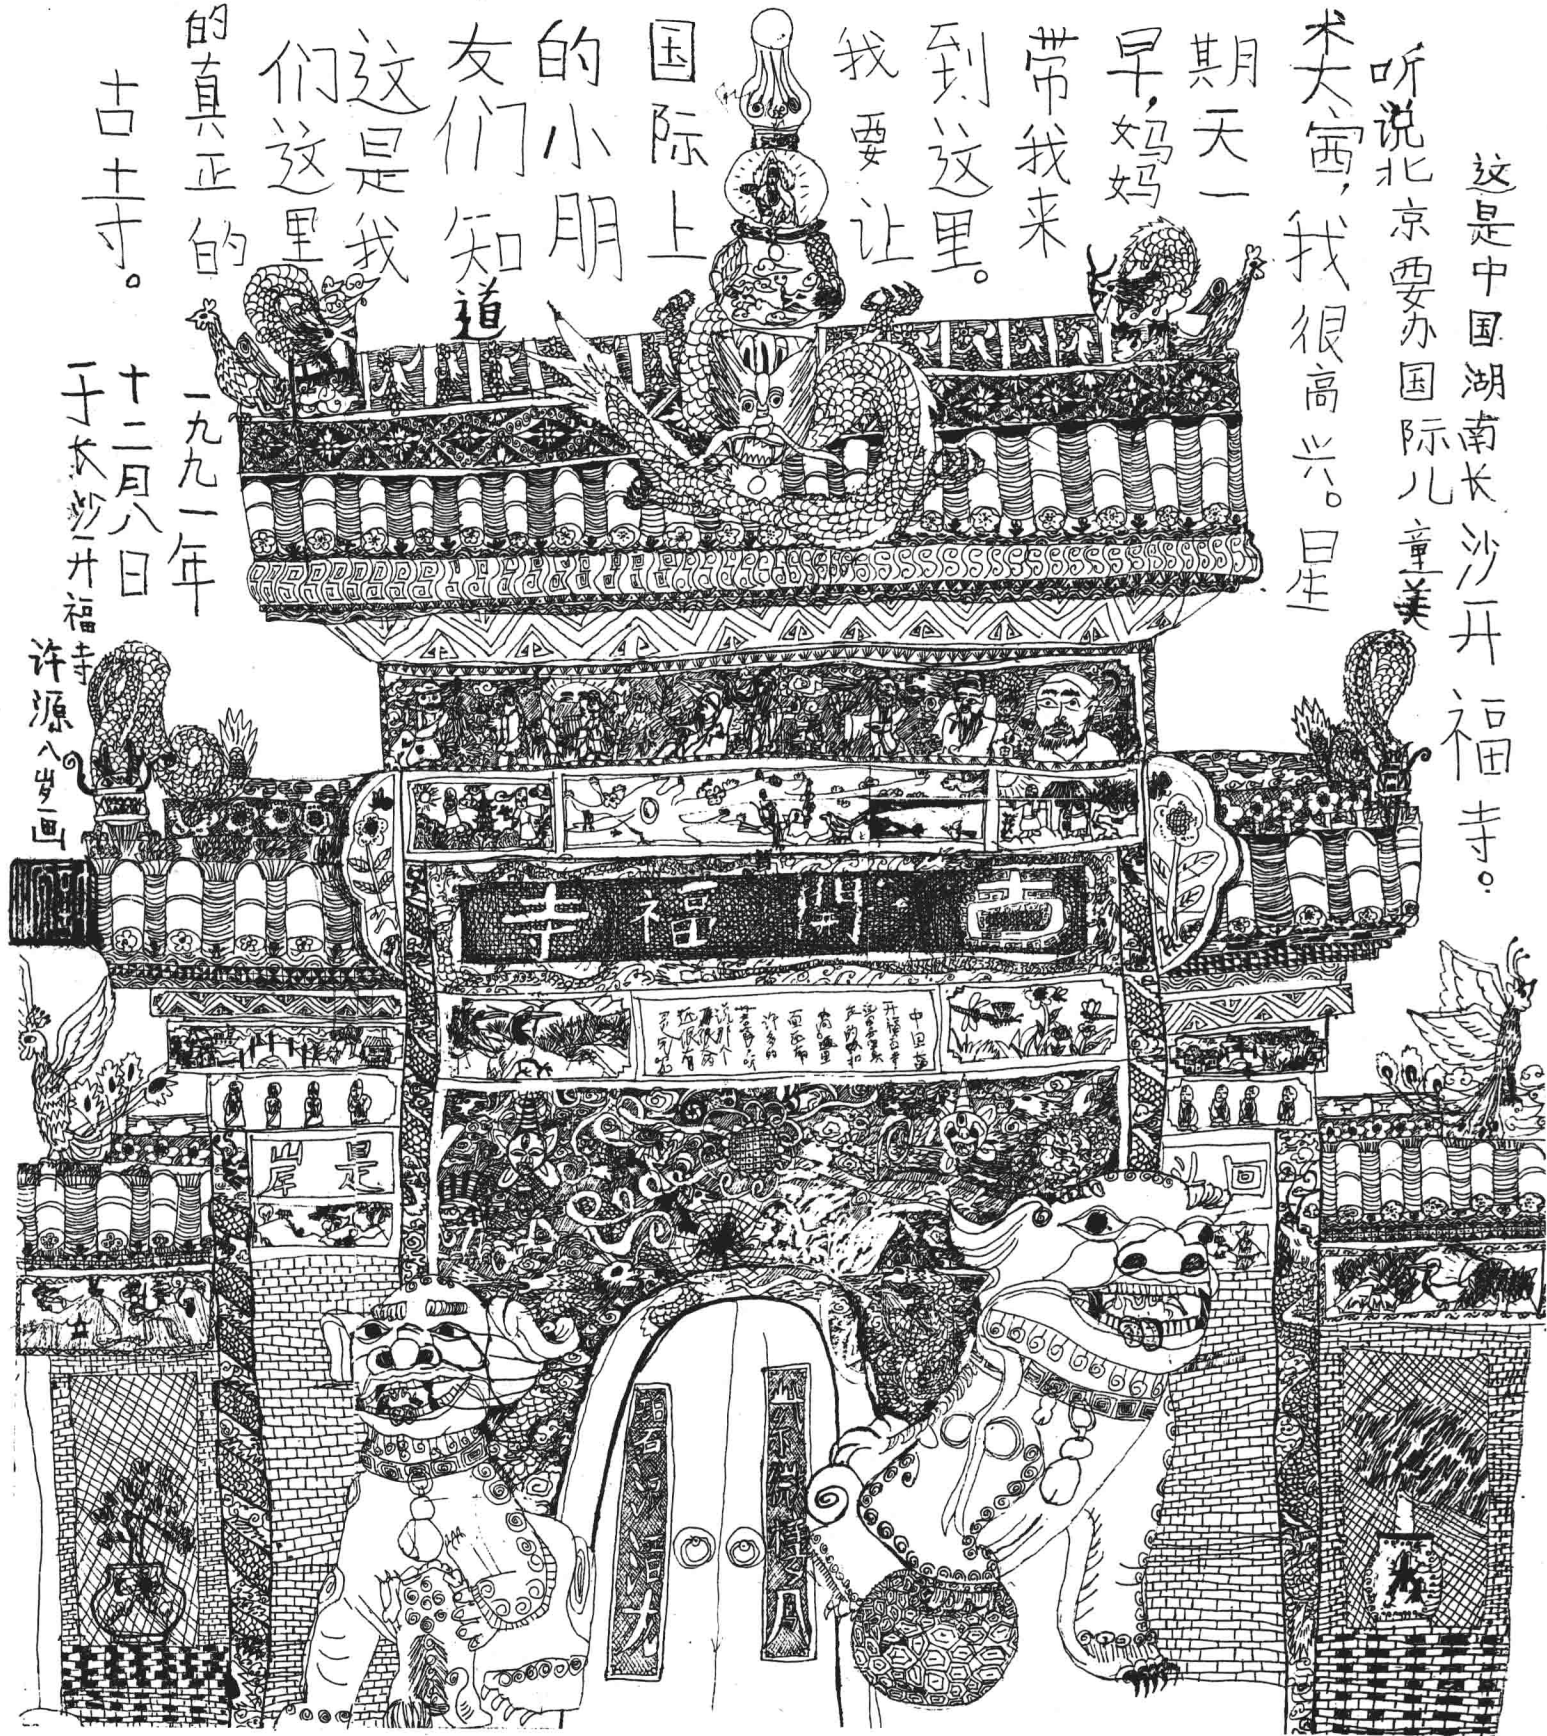 这是中国湖南长沙开福寺。
听说北京要办国际儿童美
术大赛，我很高兴。星
期天一
早，妈妈
带我来
到这里。
我要让
国际上
的小朋
友们知道
这是我
们这里
的真正的
古土寺。
一九九一年
十二月八日
于长沙开福寺
许源八岁画
古開福寺
回
是岸